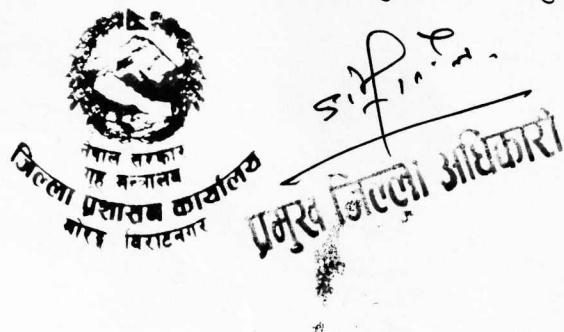 नेपाल सरकार
गृह मन्त्रालय
जिल्ला प्रशासन कार्यालय
मोरङ विराटनगर
प्रमुख जिल्ला अधिकारी